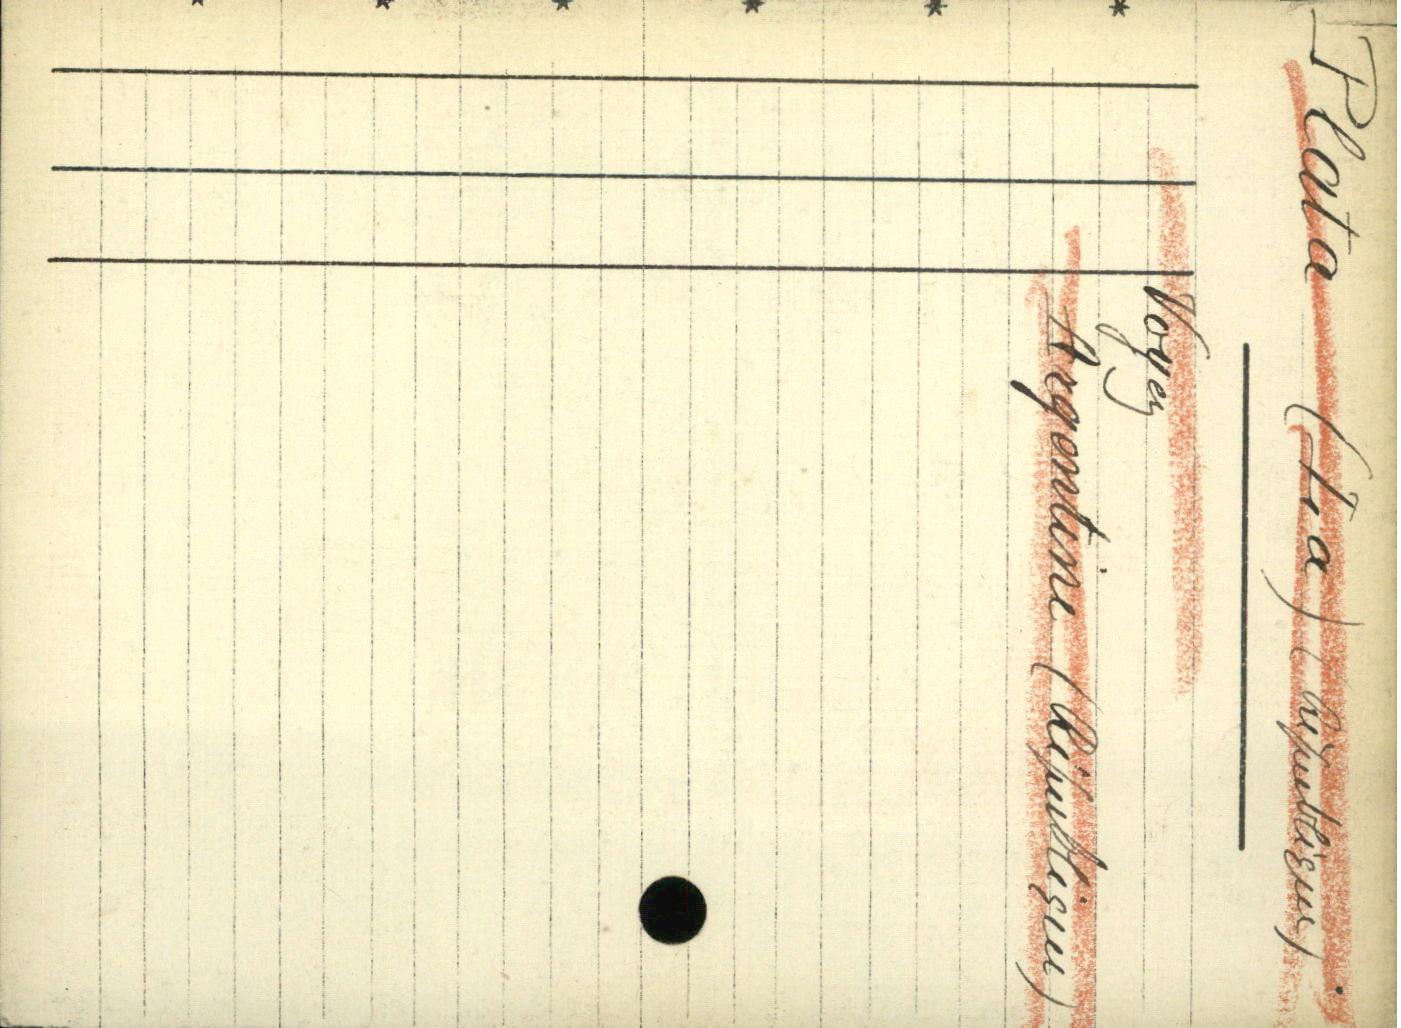 Plata (La) (République)
Voyez
Argentine (République)